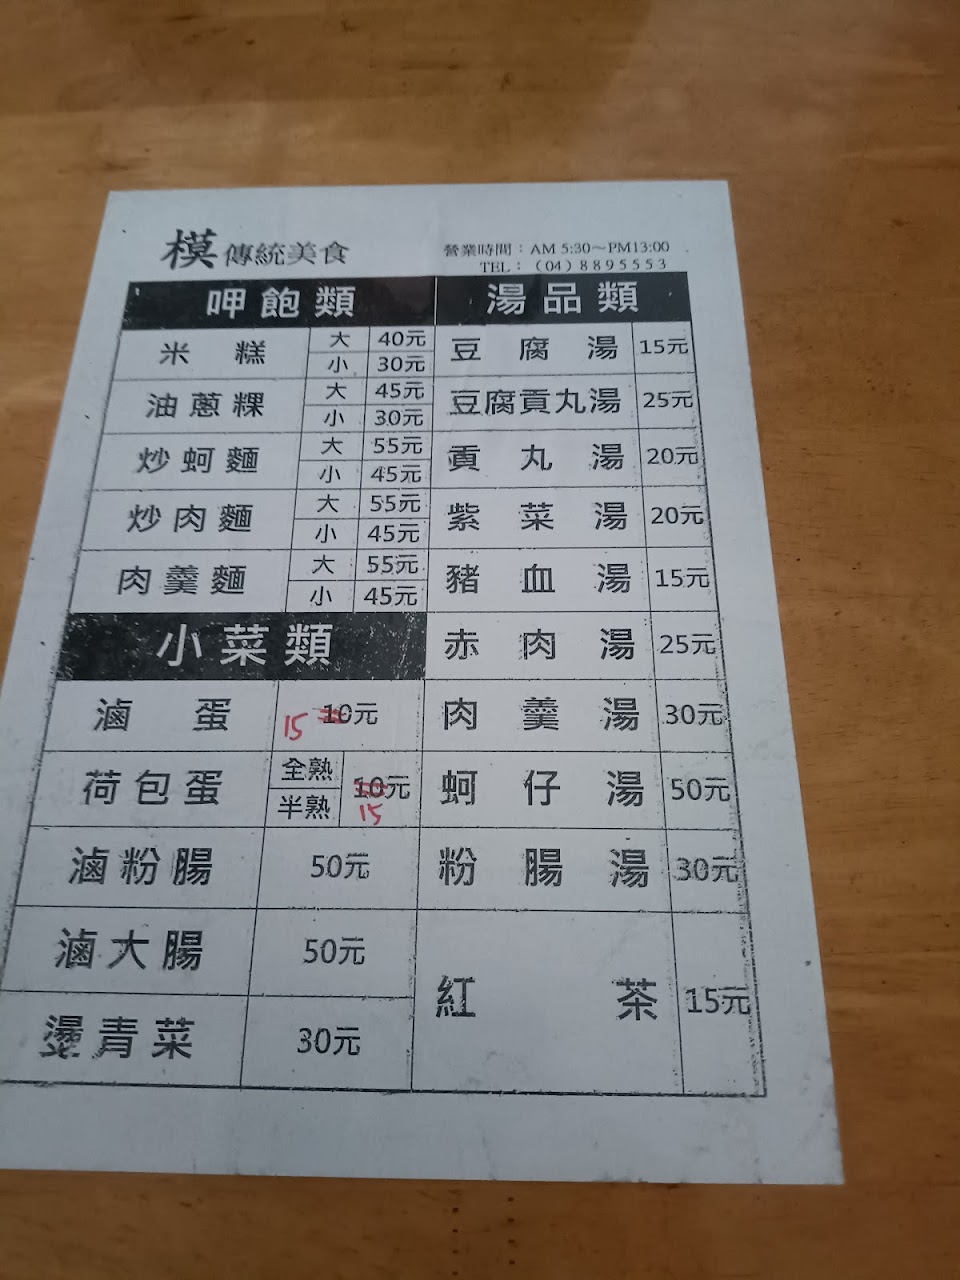 模傳統美食
營業時間：AM 5:30～PM13:00
TEL：（04）8895553
呷飽類
米糕 大 40元
小 30元
油蔥粿 大 45元
小 30元
炒蚵麵 大 55元
小 45元
炒肉麵 大 55元
小 45元
肉羹麵 大 55元
小 45元
小菜類
滷蛋 15 10元
荷包蛋 全熟 10元
半熟 15
滷粉腸 50元
滷大腸 50元
燙青菜 30元
湯品類
豆腐湯 15元
豆腐貢丸湯 25元
貢丸湯 20元
紫菜湯 20元
豬血湯 15元
赤肉湯 25元
肉羹湯 30元
蚵仔湯 50元
粉腸湯 30元
紅茶 15元